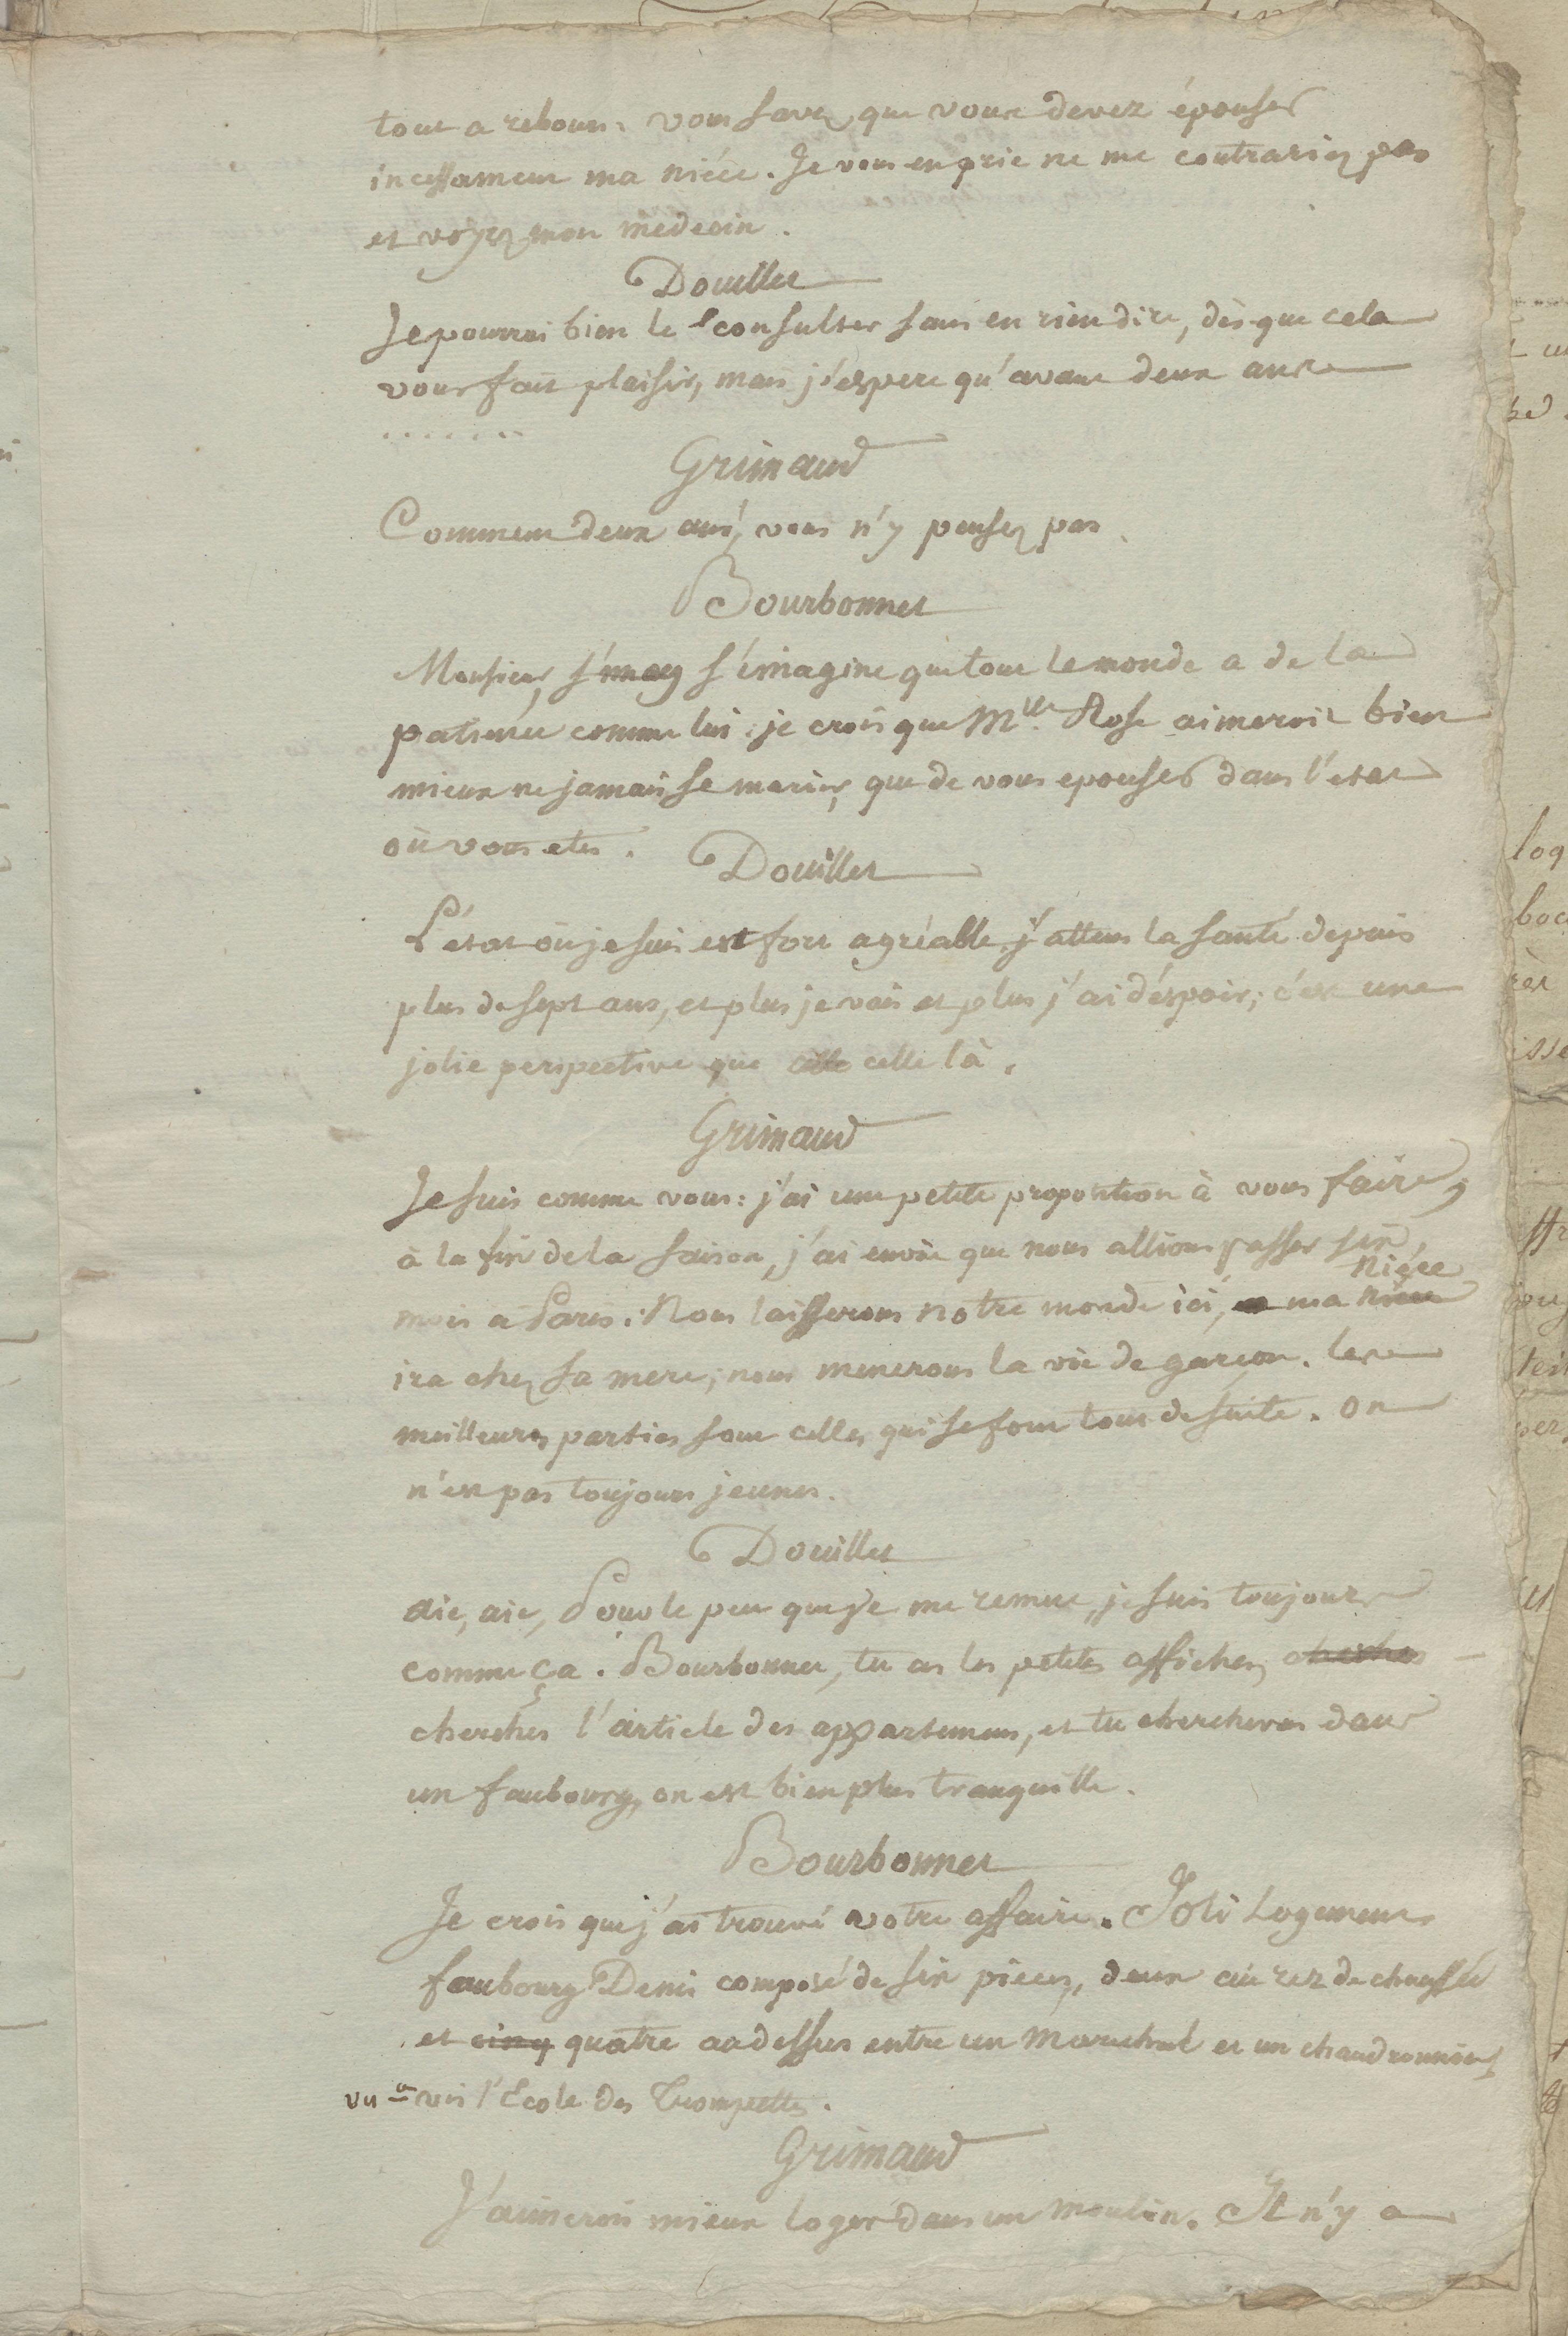 tout a rebours. vous savez que vous devez épouser
incessament ma niéce. Je vous en prie ne me contrariez pas
et voyez mon medecin.
Douillet
Je pourrai bien le consulter sans en rien dire, dès que cela
vous fait plaisir, mais j'espere qu'avant deux ans
......
Grimaud
Comment deux ans, vous n'y pensez pas.
Bourbonnet
Monsieur, s'imag s'émagine que tout le monde a de la
patience comme lui. je crois que Mlle. Rose aimeroit bien
mieux ne jamais se marier, que de vous epouser dans l'etat
où vous etes.
Douillet
L'état où je suis est fort agréable. j'attens la santé depuis
plus de sept ans, et plus je vais et plus j'ai d'éspoir; c'est une
jolie perspective que celle celle là.
Grimaud
Je suis comme vous: j'ai une petite proposition à vous faire,
à la fin de la saison, j'ai envie que nous allions passer six
mois a Paris. Nous laisserons notre monde ici, ma niéce niéce
ira chez sa mere; nous menerons la vie de garçon. les
meilleures parties sont celles qui se font tout de suite. on
n'est pas toujours jeunes.
Douillet
aie, aie, Pour le peu que je me remue, je suis toujours
comme ça. Bourbonnet, tu as les petites affiches, cherches
cherches l'article des appartemens, et tu chercheras dans
un faubourg, on est bien plus tranquille.
Bourbonnet
Je crois que j'ai trouvé votre affaire. Joli Logement
faubourg Denis composé de six pieces, deux au rez de chaussée
et cinq quatre audessus entre un Marechal et un chaudronnier,
vis a vis l'Ecole des Trompettes.
Grimaud
J'aimerois mieux loger dans un moulin. Il n'y a